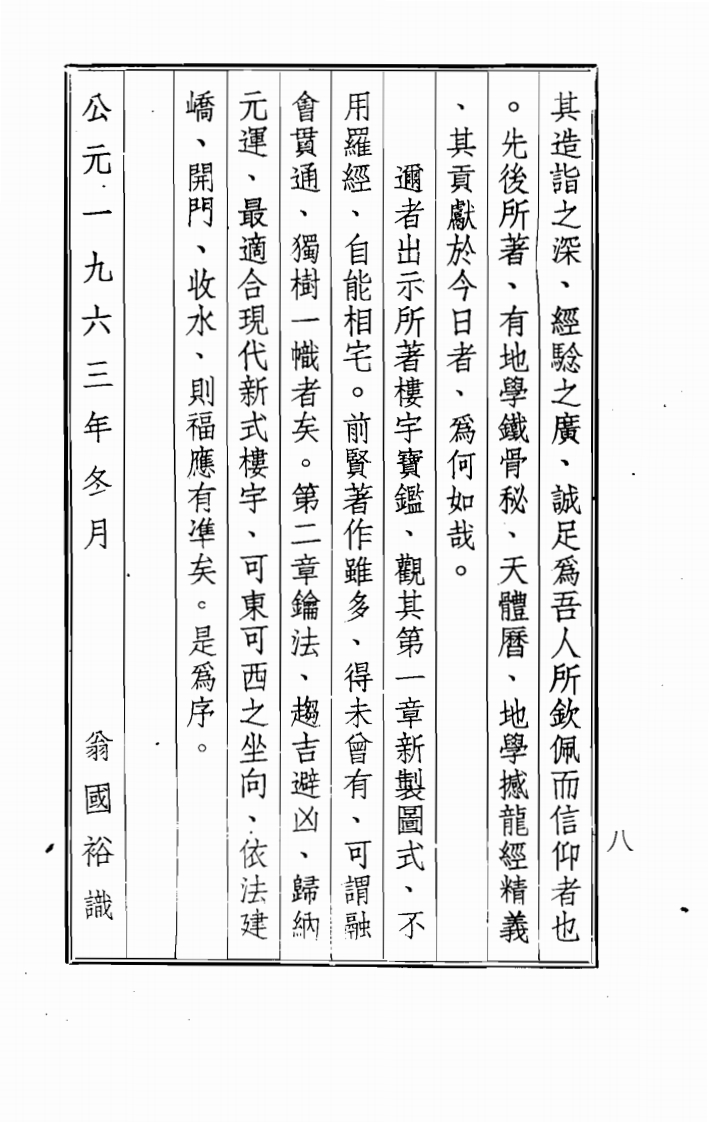 其造詣之深、經驗之廣、誠足爲吾人所欽佩而信仰者也
。先後所著、有地學鐵骨秘、天體曆、地學撼龍經精義
、其貢獻於今日者、爲何如哉。
邇者出示所著樓宇寶鑑、觀其第一章新製圖式、不
用羅經、自能相宅。前賢著作雖多、得未曾有、可謂融
會貫通、獨樹一幟者矣。第二章鑰法、趨吉避凶、歸納
元運、最適合現代新式樓宇、可東可西之坐向、依法建
嶠、開門、收水、則福應有準矣。是爲序。
公元一九六三年冬月 翁國裕識
八